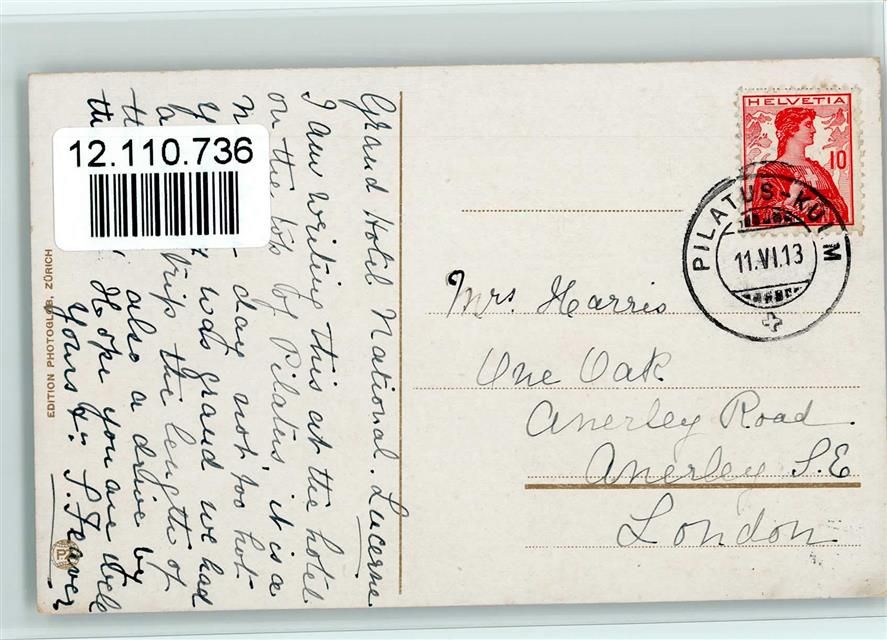 Grand Hotel National. Lucerne
I am writing this at the hotel
on the top of Pilatus, it is a
day not too hot.
was grand we had
trip the length of
also a drive by
Hope you are well
Yours
12.110.736
EDITION PHOTOGLOB, ZÜRICH
HELVETIA
10
PILATUS-KULM
11.VI.13
Mrs. Harris
One Oak
Anerley Road
Anerley S.E
London